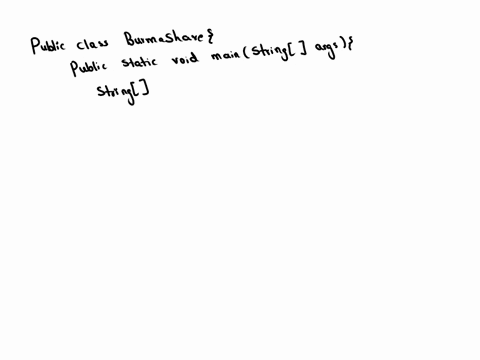 Public class BurmaShave{
Public static void main(String[] args){
String[]